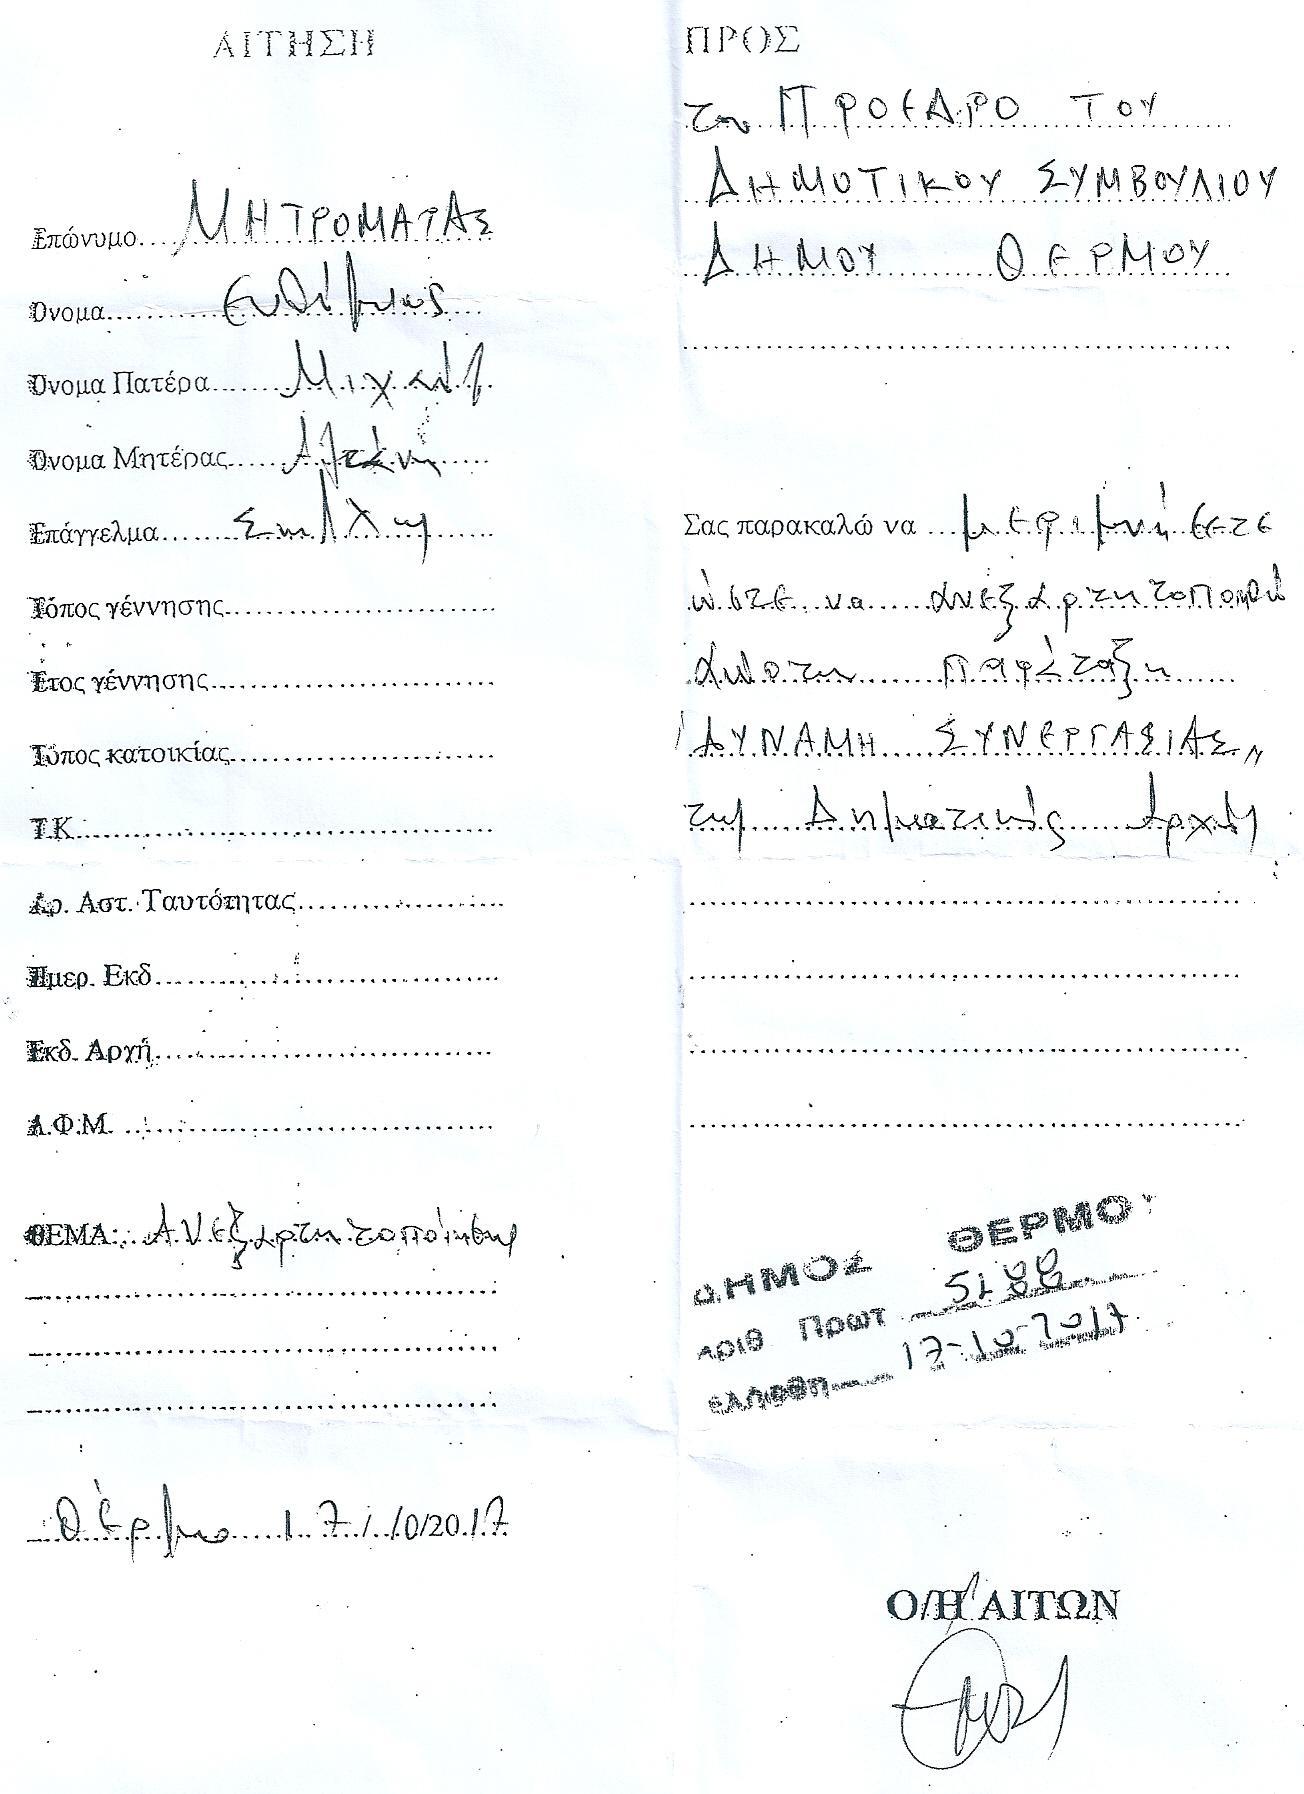 ΑΙΤΗΣΗ
Επώνυμο.... ΜΗΤΡΟΜΑΡΑΣ
Όνομα.... Ευθύμιος
Όνομα Πατέρα.... Μιχαήλ
Όνομα Μητέρας....
Επάγγελμα....
Τόπος γέννησης....
Έτος γέννησης....
Τόπος κατοικίας....
Τ.Κ....
Αρ. Αστ. Ταυτότητας....
Ημερ. Εκδ....
Εκδ. Αρχή....
Α.Φ.Μ. ....
ΘΕΜΑ:.. Ανεξαρτητοποίησης
Θέρμο 17/10/2017
ΠΡΟΣ
τον ΠΡΟΕΔΡΟ ΤΟΥ
ΔΗΜΟΤΙΚΟΥ ΣΥΜΒΟΥΛΙΟΥ
ΔΗΜΟΥ ΘΕΡΜΟΥ
Σας παρακαλώ να ... μεριμνήσετε
ώστε να ανεξαρτητοποιηθώ
από τη παράταξη
"ΔΥΝΑΜΗ ΣΥΝΕΡΓΑΣΙΑΣ"
της Δημοτικής Αρχής
ΔΗΜΟΣ ΘΕΡΜΟΥ
Αριθ Πρωτ 5188
ελήφθη 17-10-2017
Ο/Η ΑΙΤΩΝ